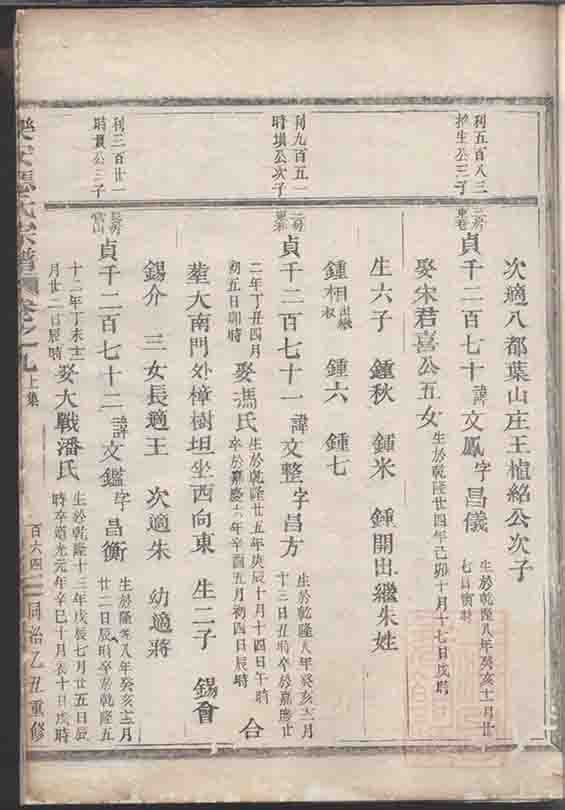 次適八都葉山庄王植紹公次子
利五百八三
推生公三子
三房
東巷
貞千二百七十諱文鳳字昌儀
生於乾隆八年癸亥十二月廿
七日寅時
娶宋君喜公五女
生於乾隆廿四年己卯十月十七日戌時
生六子 鍾秋 鍾米 鍾開出繼朱姓
鍾相出繼
鍾六 鍾七
利九百五一
時塤公次子
二房
東巷
貞千二百七十一諱文整字昌方
生於乾隆八年癸亥十二月
十三日丑時卒於嘉慶廿
二年丁丑四月
初五日卯時
娶馮氏
生於乾隆廿五年庚辰十月十四日午時
卒於嘉慶六年辛酉五月初四日辰時
合
塟大南門外樟樹坦坐西向東 生二子 錫會
錫介 三女長適王 次適朱 幼適蔣
利三百廿一
時塤公三子
長房
貞千二百七十二諱文鑑字昌衡
生於乾隆八年癸亥十二月
廿二日辰時卒於乾隆五
十二年丁未十二
月廿二日辰時
娶大戰潘氏
生於乾隆十三年戊辰七月廿五日辰
時卒道光元年辛巳十月初十日戌時
氏宗譜 卷之九上集
百六四
同治乙丑重修